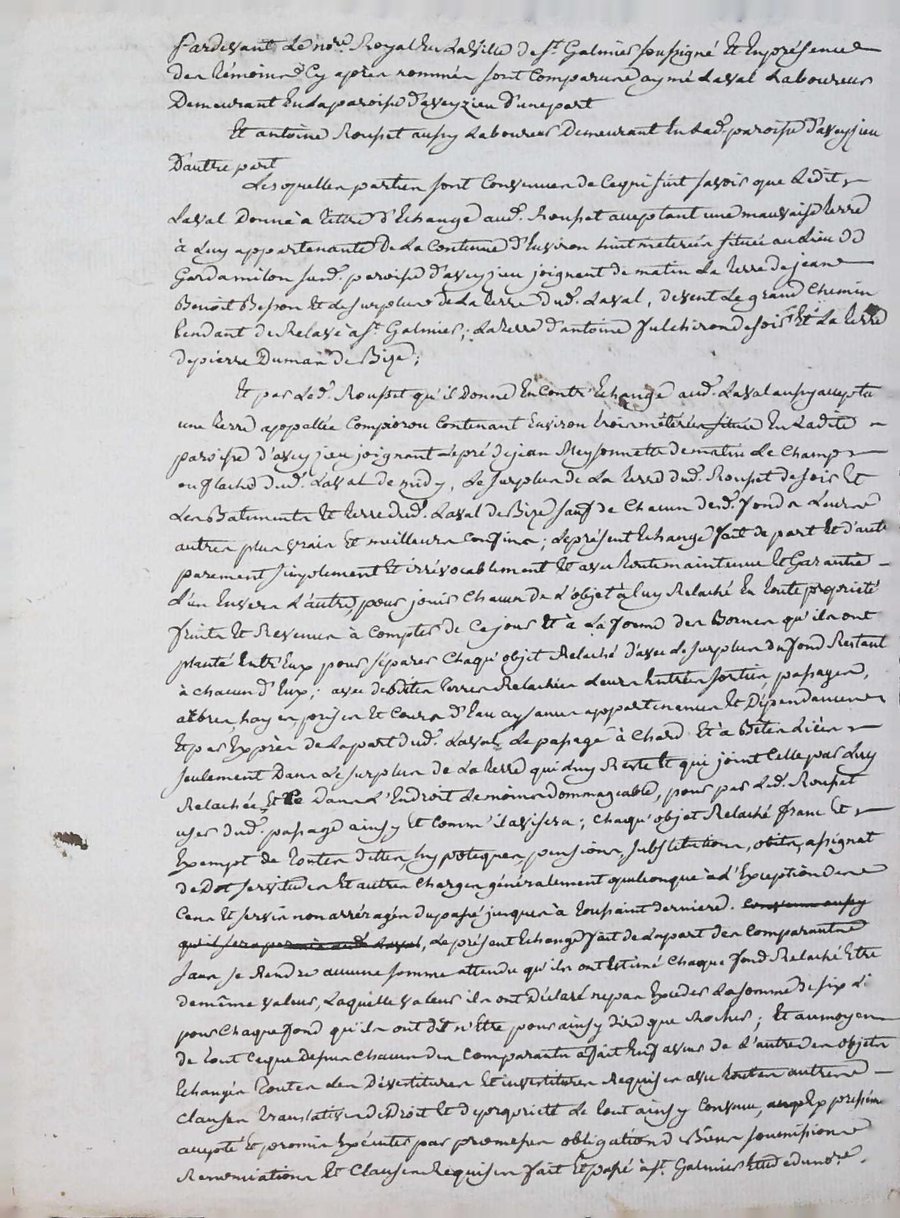 Pardevant Le no.re Royal En La Ville de S.t Galmier soussigné Et En présence
des témoins Cy après nommés sont Comparus aymé Laval Laboureur
Demeurant En La paroisse d'aveyzieu d'une part
Et antoine Rousset aussy Laboureur Demeurant En Lad. paroisse d'aveyzieu
D'autre part
Lesquelles parties sont Convenues de Ce qui suit savoir que Ledit
Laval Donne à titre d'Echange aud. Rousset acceptant une mauvaise terre
à Luy appartenante De La Contenue d'Environ huit meterées située au Lieu de
Gardamilon sud. paroisse d'aveyzieu joignant de matin La terre de jean
Benoit Besson Et de surplus de La terre dud. Laval, de vent Le grand Chemin
tendant de à S.t Galmier; La terre d'antoine Julchiron de soir Et La terre
de pierre Dumas de Bize;
Et par Led. Rousset qu'il Donne En Contr'Echange aud. Laval aussy accepta
une terre appellée Compiorou Contenant Environ trois méterées située En Ladite
paroisse d'aveyzieu joignant Le pré de jean Meyssonnette de matin Le Champ
ou flache dud. Laval de midy, Le surplus de La terre dud. Rousset de soir Et
Les Batiments Et terre dud. Laval de Bize sauf de Chacun desd. fonds Leurs
autres plus vrais Et meilleurs Confins; Le présent Echange fait de part Et d'autre
purement simplement Et irrévocablement Et avec toute maintenue Et Garantie
L'un Envers L'autre, pour jouir Chacun de L'objet à Luy Relaché En toute propriété
fruits Et Revenus à Compter de Ce jour Et à La forme des Bornes qu'ils ont
planté Entr'Eux pour séparer Chaqu'objet Relaché d'avec Le surplus du fond Restant
à chacun d'Eux; avec desdites terres Relachées Leurs Entrées sorties, passages,
arbres, hayes, prises Et Cours d'Eau aysances appartenances Et Dépendances
Et par Exprès de La part dud. Laval Le passage à Chard Et à Bêtes Liées
seulement Dans Le surplus de La terre qui Luy Reste Et qui joint Celle par Luy
Relachée Et Ce Dans L'Endroit Le moins dommageable, pour par Led. Rousset
user dud. passage ainsy Et Comm'il avisera; Chaqu'objet Relaché franc Et
Exempt de toutes dettes, hypoteques, pensions, substitutions, obits, assignat
de Dot servitudes Et autres Charges généralement quelconque à L'Exception des
Cens Et servis non arréragés du passé jusques à toussaint derniere. Convenu aussy
qu'il sera permis aud. Laval, Le présent Echange fait de La part des Comparants
sans se Rendre aucune somme attendu qu'ils ont Estimé Chaque fond Relaché Etre
de même valeur, Laquelle valeur ils ont Déclaré ne pas Exceder La somme de six Li
pour Chaque fond qu'ils ont dit n'Etre pour ainsy dire que Rocher; Et au moyen
de tout Ce que Dessus Chacun des Comparants a fait En faveur de L'autre des objets
Echangés toutes Les Dévestitures Et investitures Requises avec toutes autres
Clauses translatives de Droit Et de propriété Le tout ainsy Convenu,
accepté Et promis Exécuter par promesses obligations Biens soumissions
Renonciations Et Clauses Requises fait Et passé à S.t Galmier Etude du no.re.